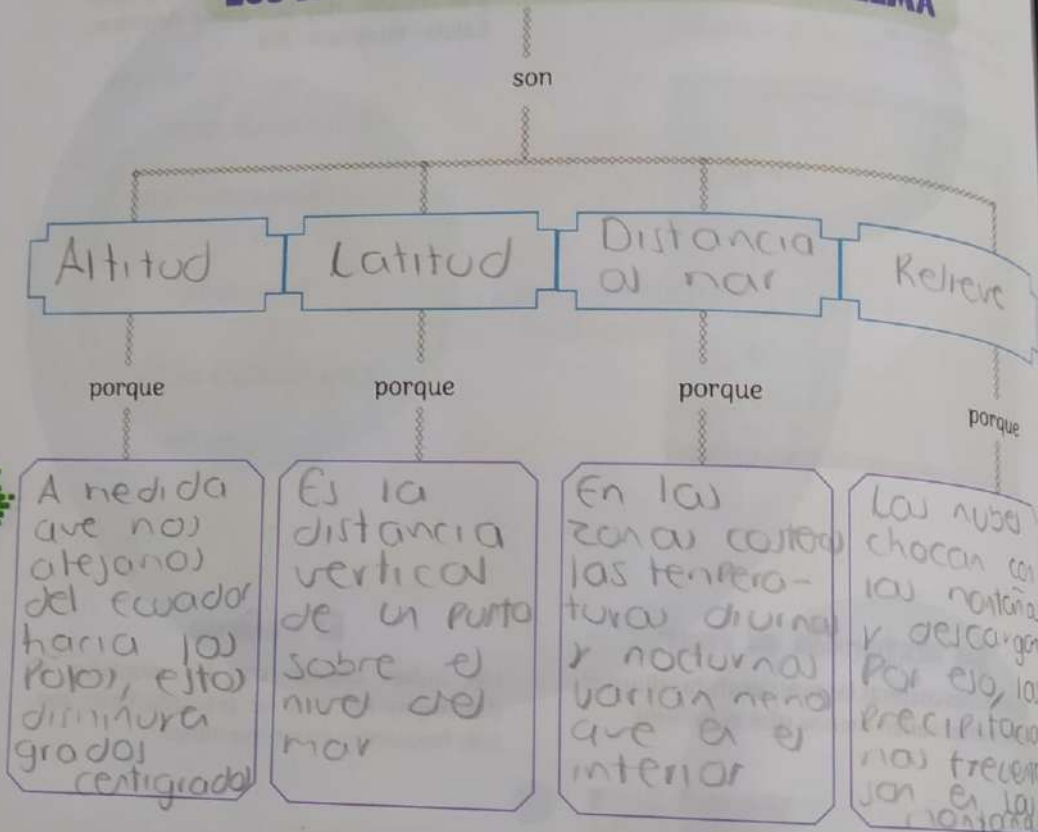 son
Altitud
Latitud
Distancia
al mar
Relieve
porque
porque
porque
porque
A medida
que nos
alejamos
del ecuador
hacia los
Polos, estos
grados
centigrados
Es la
distancia
vertical
de un punto
sobre el
nivel del
mar
En las
zonas
las tempera-
turas diurnas
y nocturnas
varian meno
que en el
interior
Las nubes
chocan con
las montaña
y descargan
Por eso, las
Precipitacio
mas frecuen
son en las
montaña